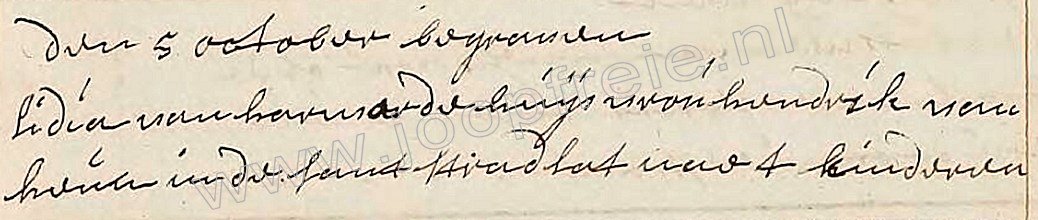 den 5 october begraven
lidia van harn de huijs vrou hendrik van
heúen in de sant strad lat nae 4 kinderen
www.loopfreie.nl